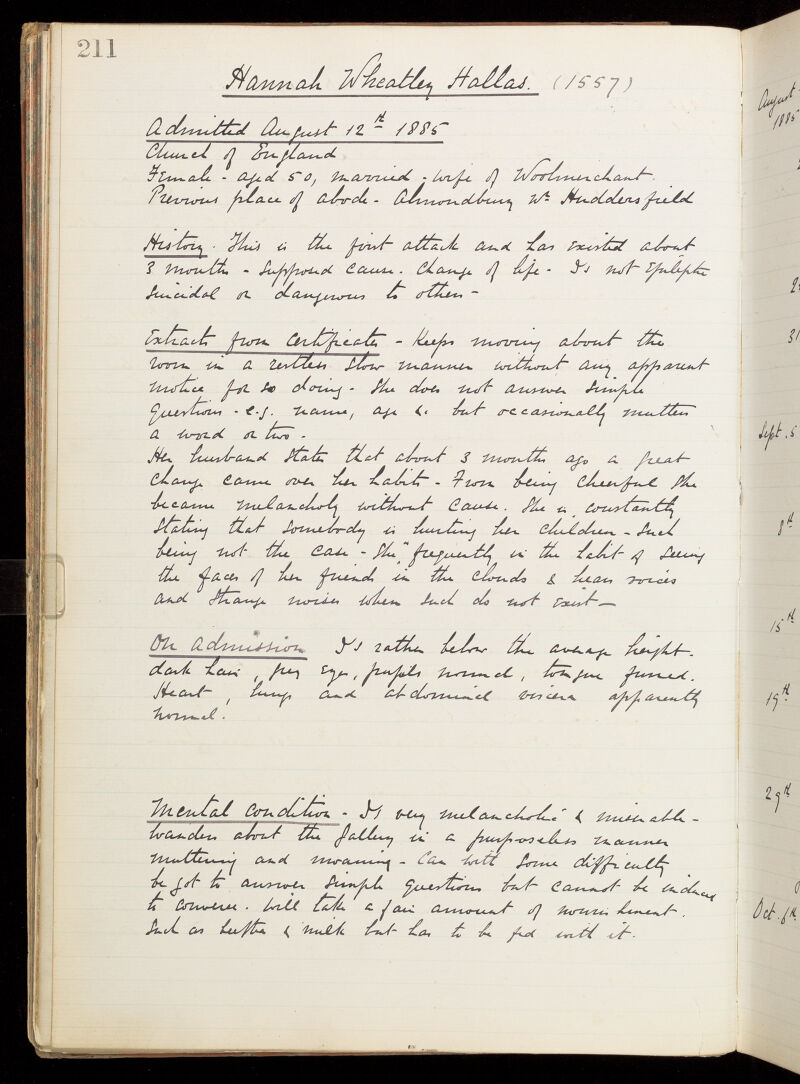 211
Hannah Wheatley Hallas. (1557)
Admitted August 12th 1885
Church of England
Female - aged 50, married - wife of Woolmerchant.
Previous place of abode - Almondbury Nr Huddersfield
History. This is the first attack and has existed about
3 months - Supposed cause. Change of life - Is not Epileptic
Suicidal or dangerous to others -
Extracts from Certificates - Keeps moving about the
room in a restless slow manner without any apparent
motive for so doing - She does not answer simple
Questions - e.g. name, age &c but occasionally mutters
a word or two -
Her husband states that about 3 months ago a great
change came over her habits - From being cheerful she
became melancholy without cause. She is constantly
stating that somebody is hurting her children - such
being not the case - She frequently in the habit of seeing
the faces of her friends in the clouds & hears voices
and strange noises when such do not exist -
On admission Is rather below the average height.
dark hair, grey Eyes, pupils normal, tongue furred.
Heart, lungs and abdominal viscera apparently
normal.
Mental condition - Is very melancholic & miserable -
wanders about the Gallery in a purposeless manner
muttering and moaning - Can with some difficulty
be got to answer simple questions but cannot be induced
to converse. Will take a fair amount of nourishment.
Such as beeftea & milk but has to be fed with it.
August
1885
31
Sept. 5
8th
15th
19th
29th
Oct. 6th